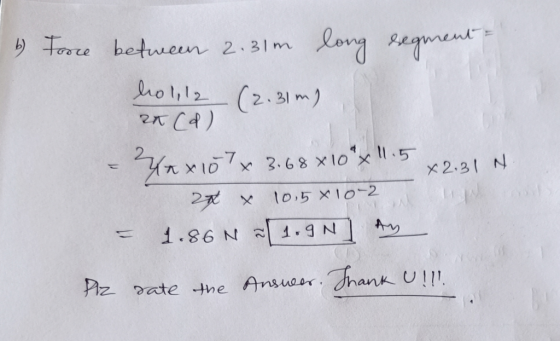 b) Force between 2.31m long segment =
μ0 I1 I2 / 2π (d) (2.31m)
= 2 4π × 10^-7 × 3.68 × 10^4 × 11.5 / 2π × 10.5 × 10^-2 × 2.31 N
= 1.86 N ≈ 1.9 N Ans
Plz rate the Answer. Thank U!!!.